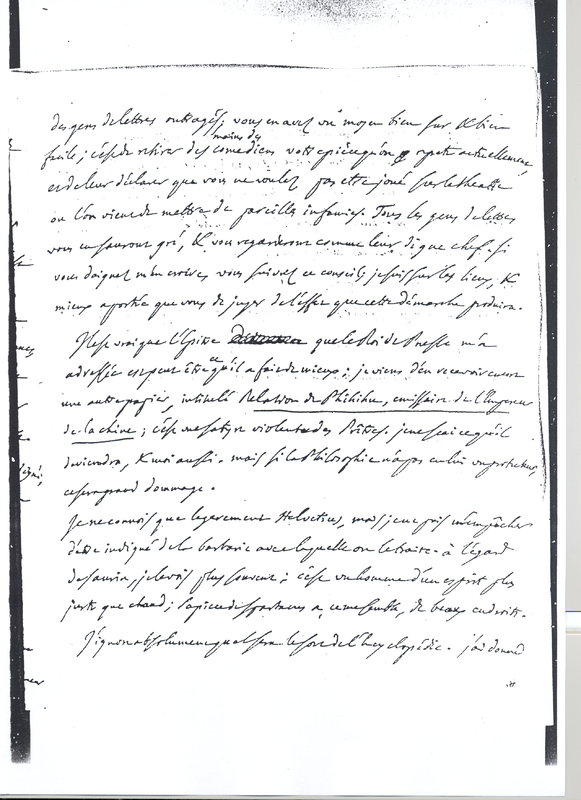 des gens de lettres outragés; vous en avez un moyen bien sur & bien
facile; c'est de retirer des mains des comediens votre piéce qu'on repete actuellement,
et de leur déclarer que vous ne voulez pas etre joué sur le theatre
ou l'on vient de mettre de pareilles infamies. Tous les gens de lettres
vous en sauront gré, & vous regarderont comme leur digne chef. Si
vous daignez m'en croire, vous suivrez ce conseil; je suis sur les lieux, &
mieux a portée que vous de juger de l'effet que cette démarche produira.
Il est vrai que l'Epitre que le Roi de Prusse m'a
adressée est peut être ce qu'il a fait de mieux; je viens d'en recevoir encore
une autre papier, intitulé Relation de Phihihu, emissaire de l'Empereur
de la chine; c'est une satyre violente des Prêtres. je ne sai ce qu'il
deviendra, & moi aussi. mais si la Philosophie n'a pas en lui un protecteur,
ce sera grand dommage.
Je ne connois que legerement Helvetius, mais je ne puis m'empêcher
d'etre indigné de la barbarie avec laquelle on le traite. à l'égard
de Saurin, je le vois plus souvent; c'est un homme d'un esprit plus
juste que chaud; sa piece de Spartacus a, ce me semble, de beaux endroits.
J'ignore absolument quel sera le sort de l'Encyclopédie. j'ai donné